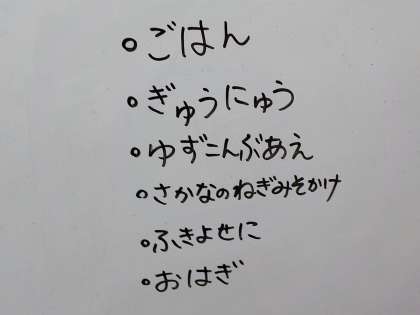 ・ごはん
・ぎゅうにゅう
・ゆずこんぶあえ
・さかなのねぎみそがけ
・ふきよせに
・おはぎ